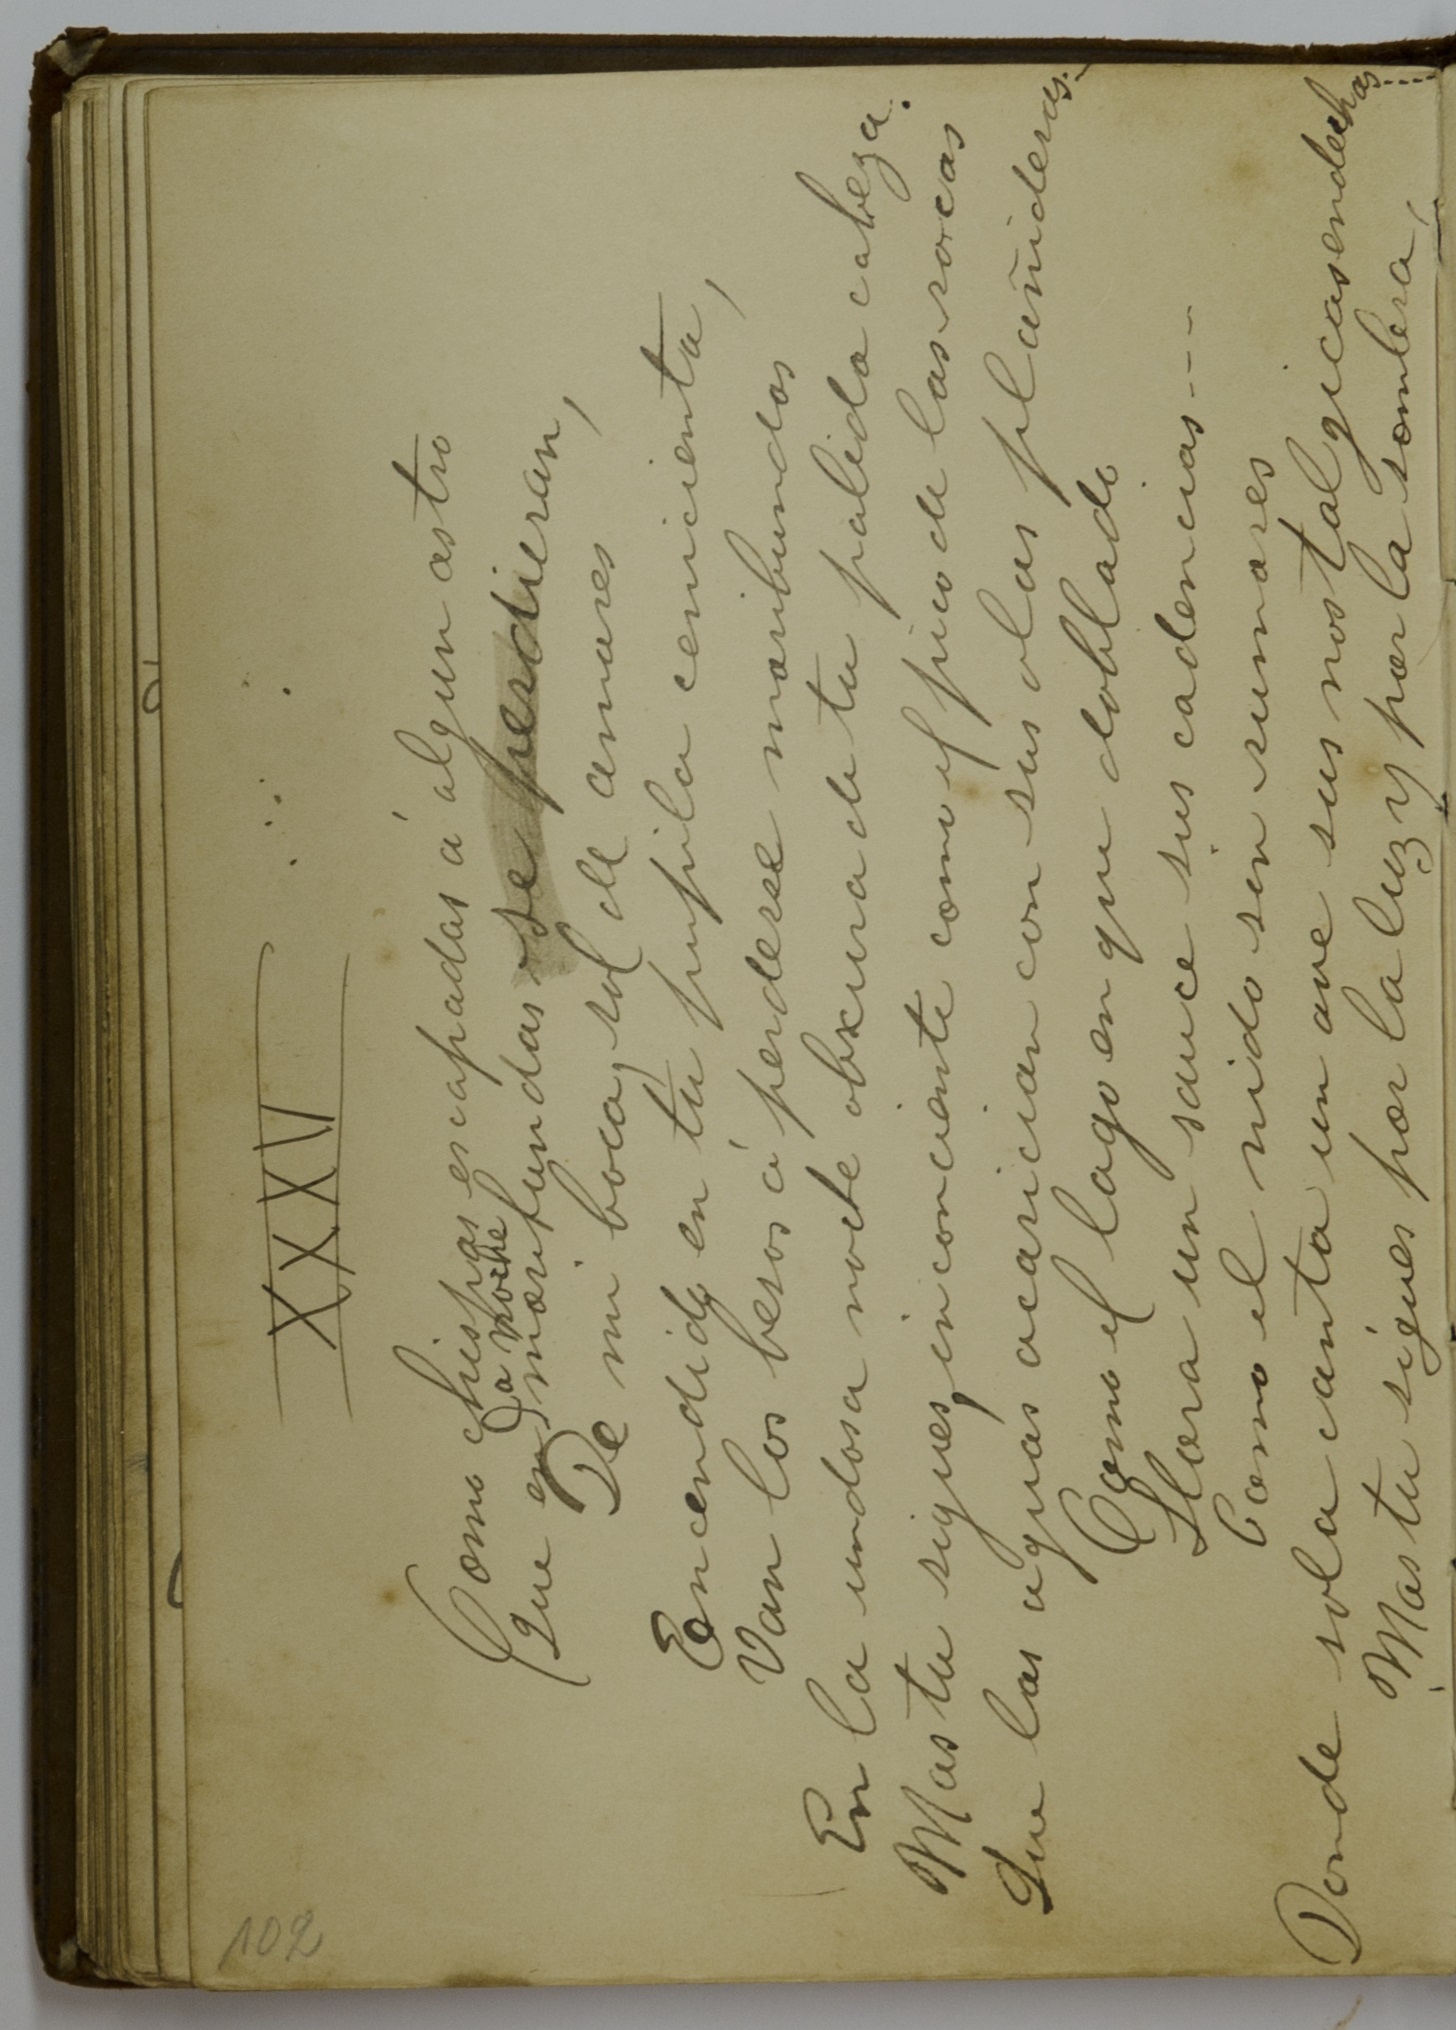 102
XXXV
Como chispas escapadas á algun astro
Que en la noche
moribundas se perdieran,
De mi boca, sol de amores
Encendido en tu pupila cenicienta,
Van los besos á perderse moribundos
En la undosa noche obxcura de tu palida cabeza.
Mas tu sigues, inconciente como el pico de las rocas
Que las aguas acarician con sus olas plañideras.
Como el lago en que doblado
Llora un sauce sus cadencias---
Como el nido sin rumores
Donde sola canta un ave sus nostalgicas endechas
Mas tu sigues por la luz y por la sombra,